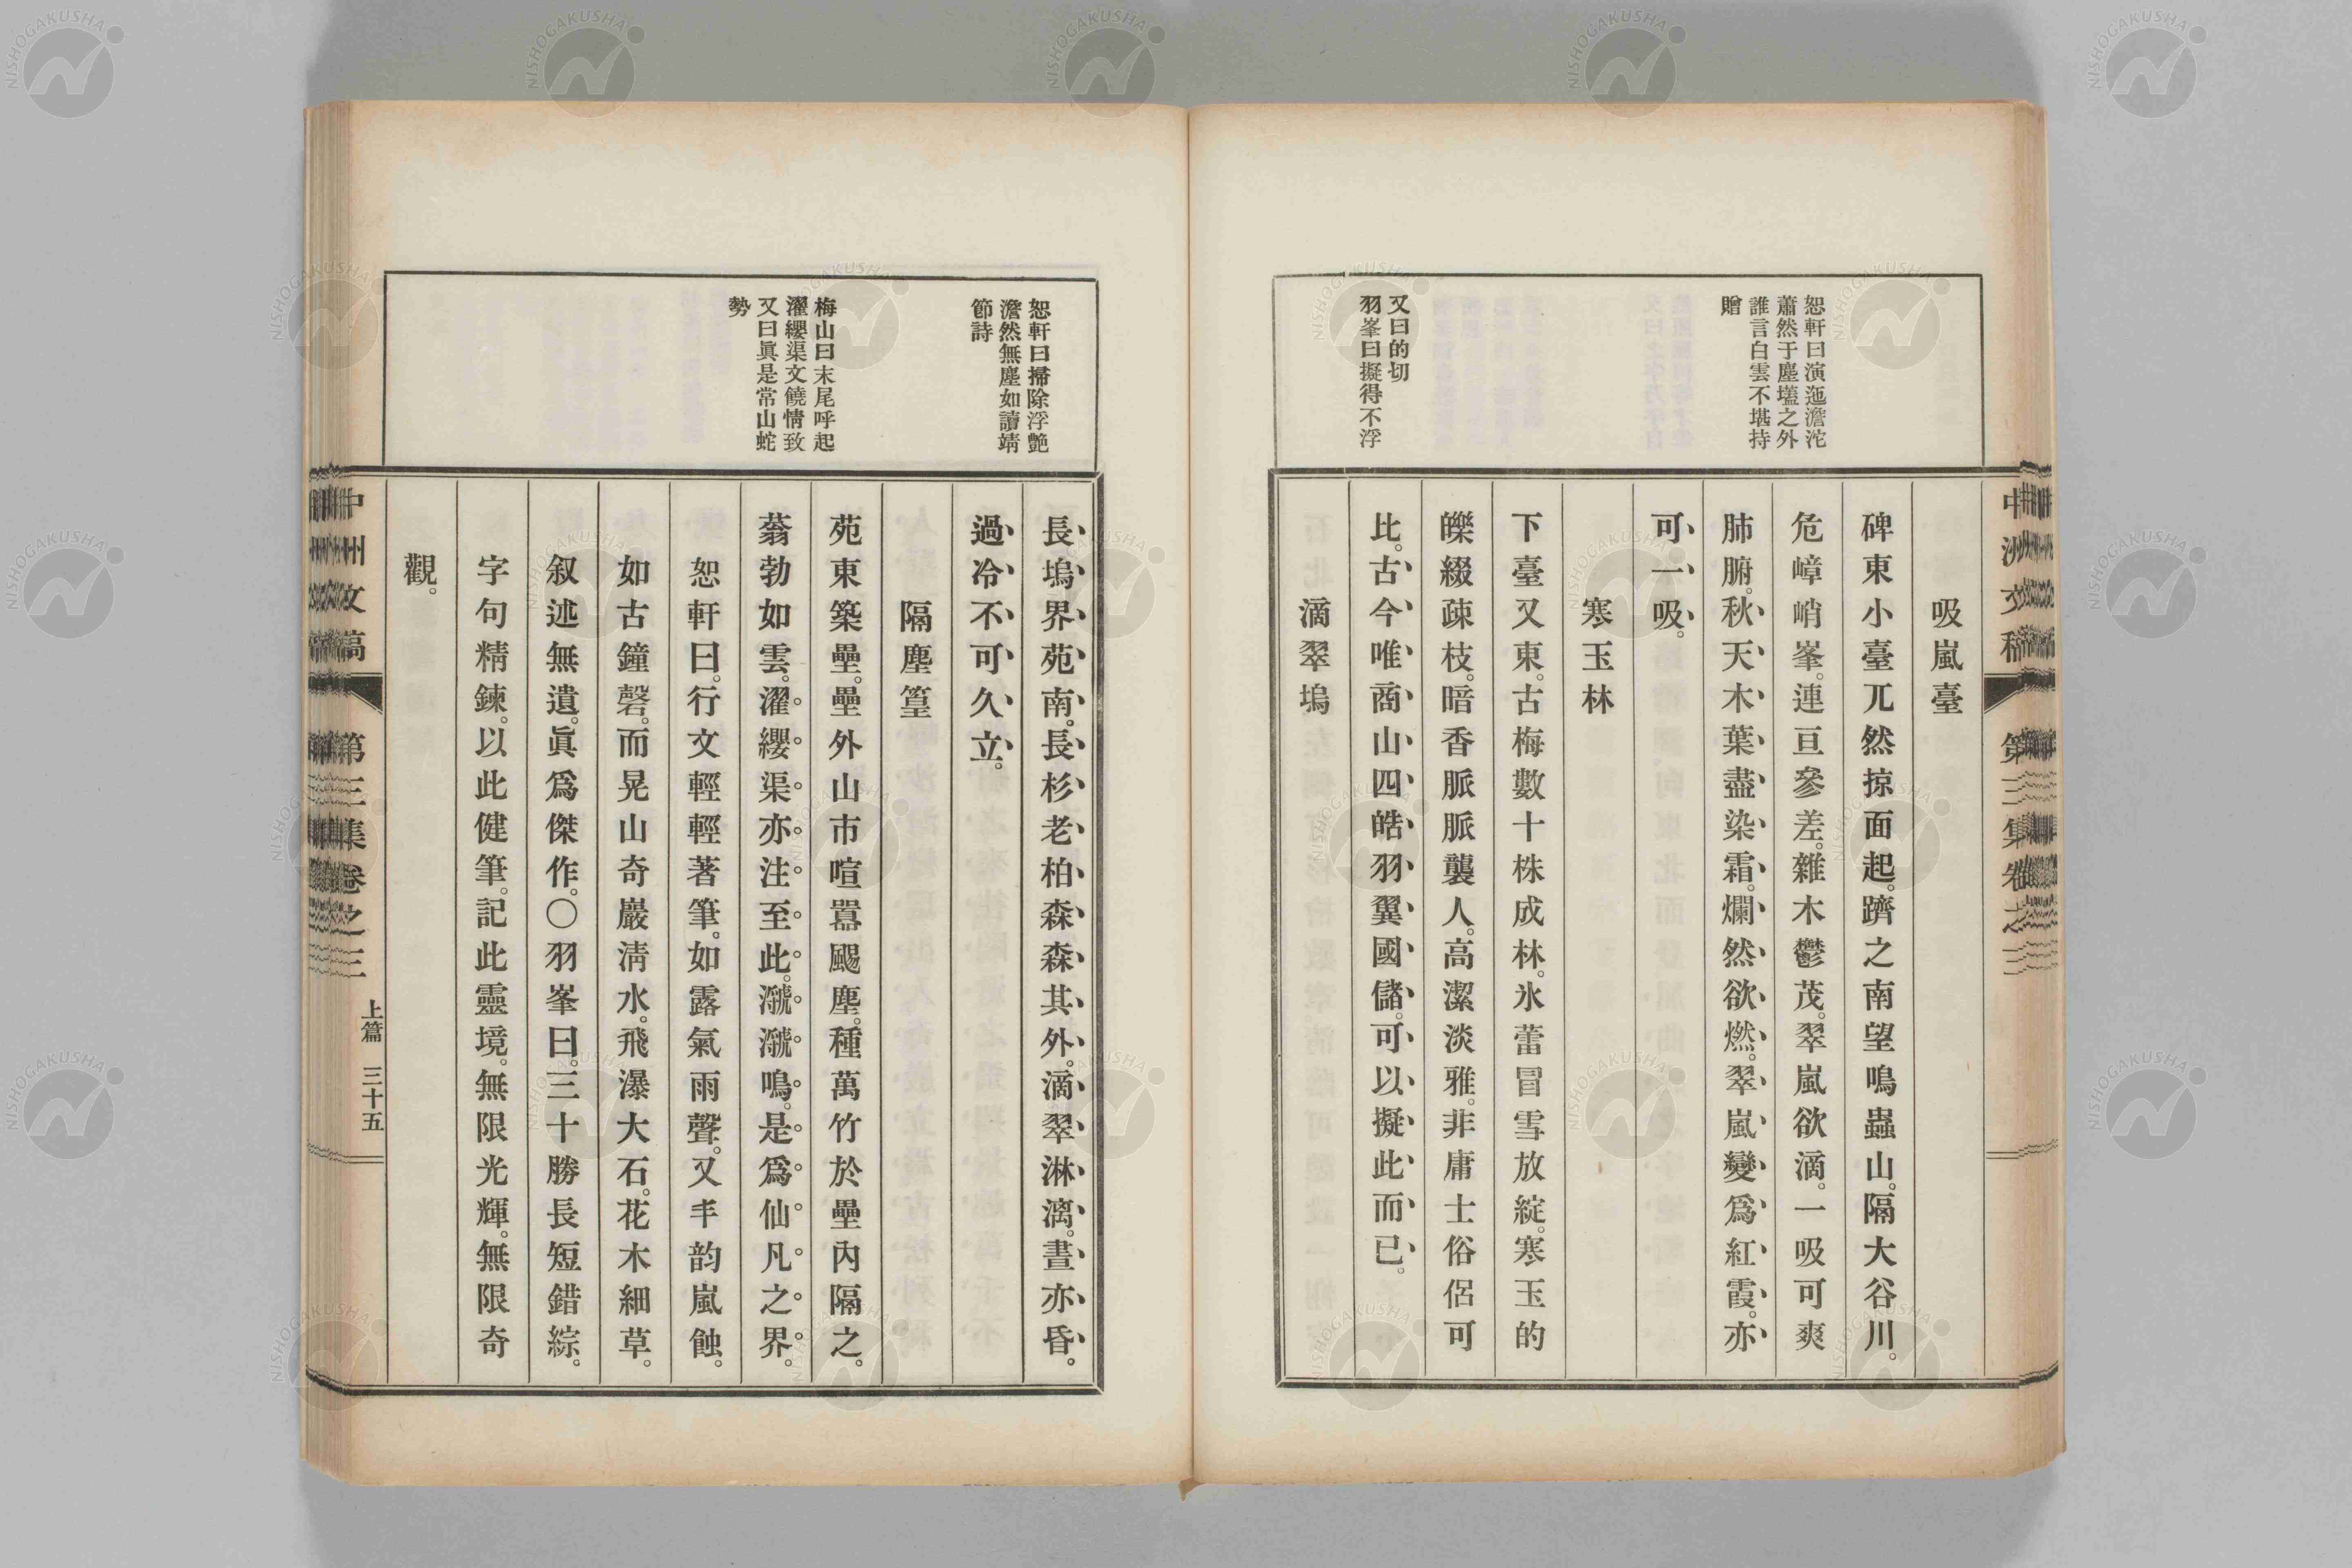 恕軒曰演迤澹沱
蕭然于塵壒之外
誰言白雲不堪持
贈
又曰的切
羽峯曰擬得不浮
吸嵐臺
碑東小臺兀然掠面起。躋之南望鳴蟲山。隔大谷川。
危嶂峭峯。連亘參差。雜木鬱茂。翠嵐欲滴。一吸可爽
肺腑。秋天木葉盡染霜。爛然欲燃。翠嵐變爲紅霞。亦
可一吸。
寒玉林
下臺又東。古梅數十株成林。氷蕾冒雪放綻。寒玉的
皪綴疎枝。暗香脈脈襲人。高潔淡雅。非庸士俗侶可
比。古今唯商山四皓羽翼國儲。可以擬此而已。
滴翠塢
中洲文稿 第三集卷之三
恕軒曰掃除浮艶
澹然無塵如讀靖
節詩
梅山曰末尾呼起
濯纓渠文饒情致
又曰眞是常山蛇
勢
長塢界苑南。長杉老柏森森其外。滴翠淋漓。晝亦昏。
過冷不可久立。
隔塵篁
苑東築壘。壘外山市喧囂颺塵。種萬竹於壘內隔之。
蓊勃如雲。濯纓渠亦注至此。㶁㶁鳴。是爲仙凡之界。
恕軒曰。行文輕輕著筆。如露氣雨聲。又丰韵嵐蝕。
如古鐘磬。而晃山奇巖清水。飛瀑大石。花木細草。
叙述無遺。眞爲傑作。〇羽峯曰。三十勝長短錯綜。
字句精鍊。以此健筆。記此靈境。無限光輝。無限奇
觀。
中洲文稿 第三集卷之三 上篇 三十五
NISHOGAKUSHA